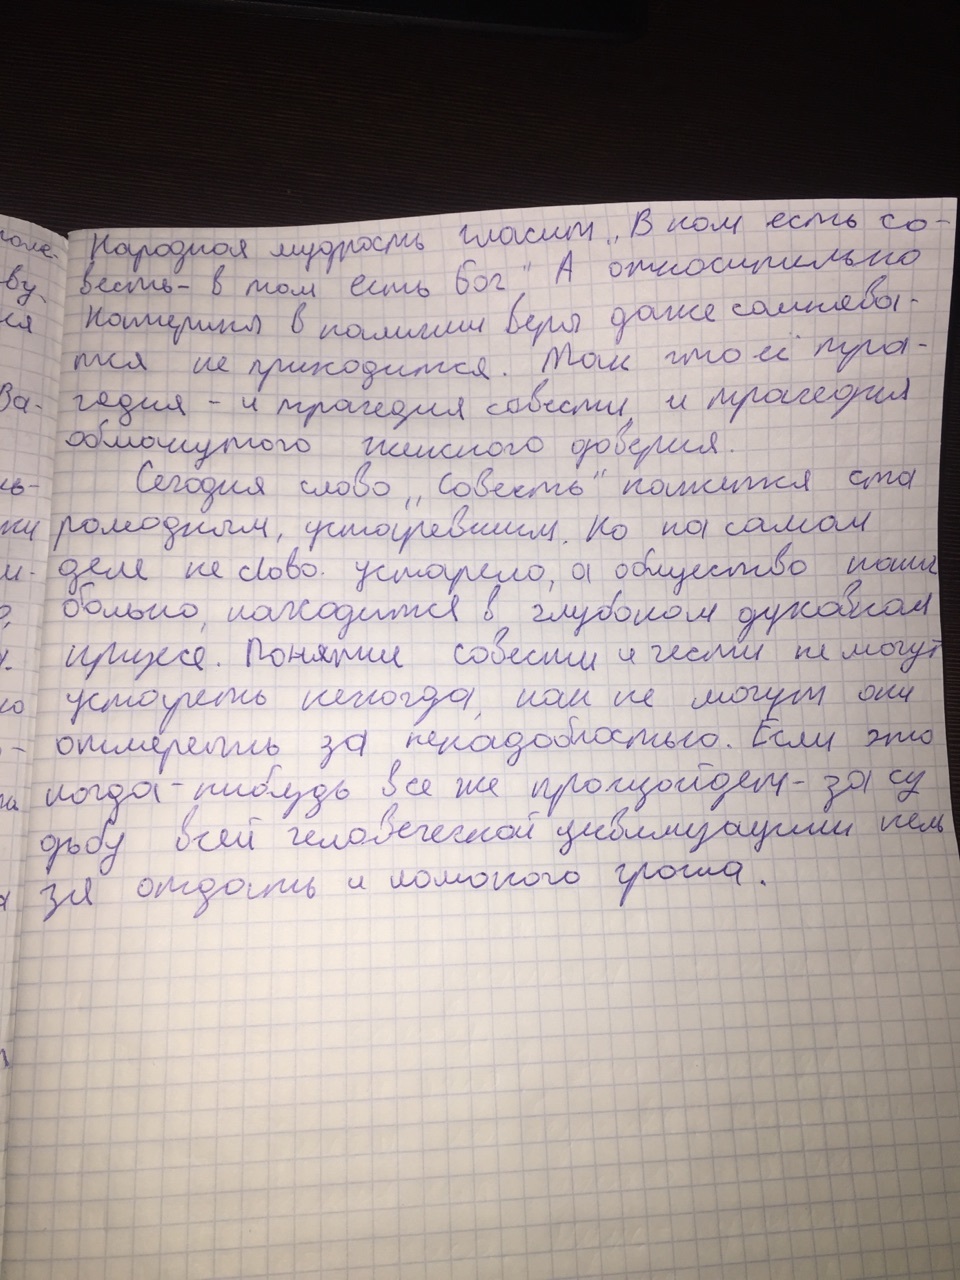 Народная мудрость гласит „В ком есть со-
весть - в том есть бог" А относительно
Катерины в наличии веры даже сомнева-
тся не приходится. Так что её тра-
гедия - и трагедия совести, и трагедия
обманутого женского доверия.
Сегодня слово „Совесть" кажется ста
ромодным, устаревшим. Но на самом
деле не слово. устарело, а общество наше
больно, находится в глубоком духовном
кризисе. Понятие совести и чести не могут
устареть некогда, как не могут они
отмереть за ненадобностью. Если это
когда-нибудь все же произойдет - за су
дьбу всей человеческой цивилизации нель
зя отдать и ломаного гроша.